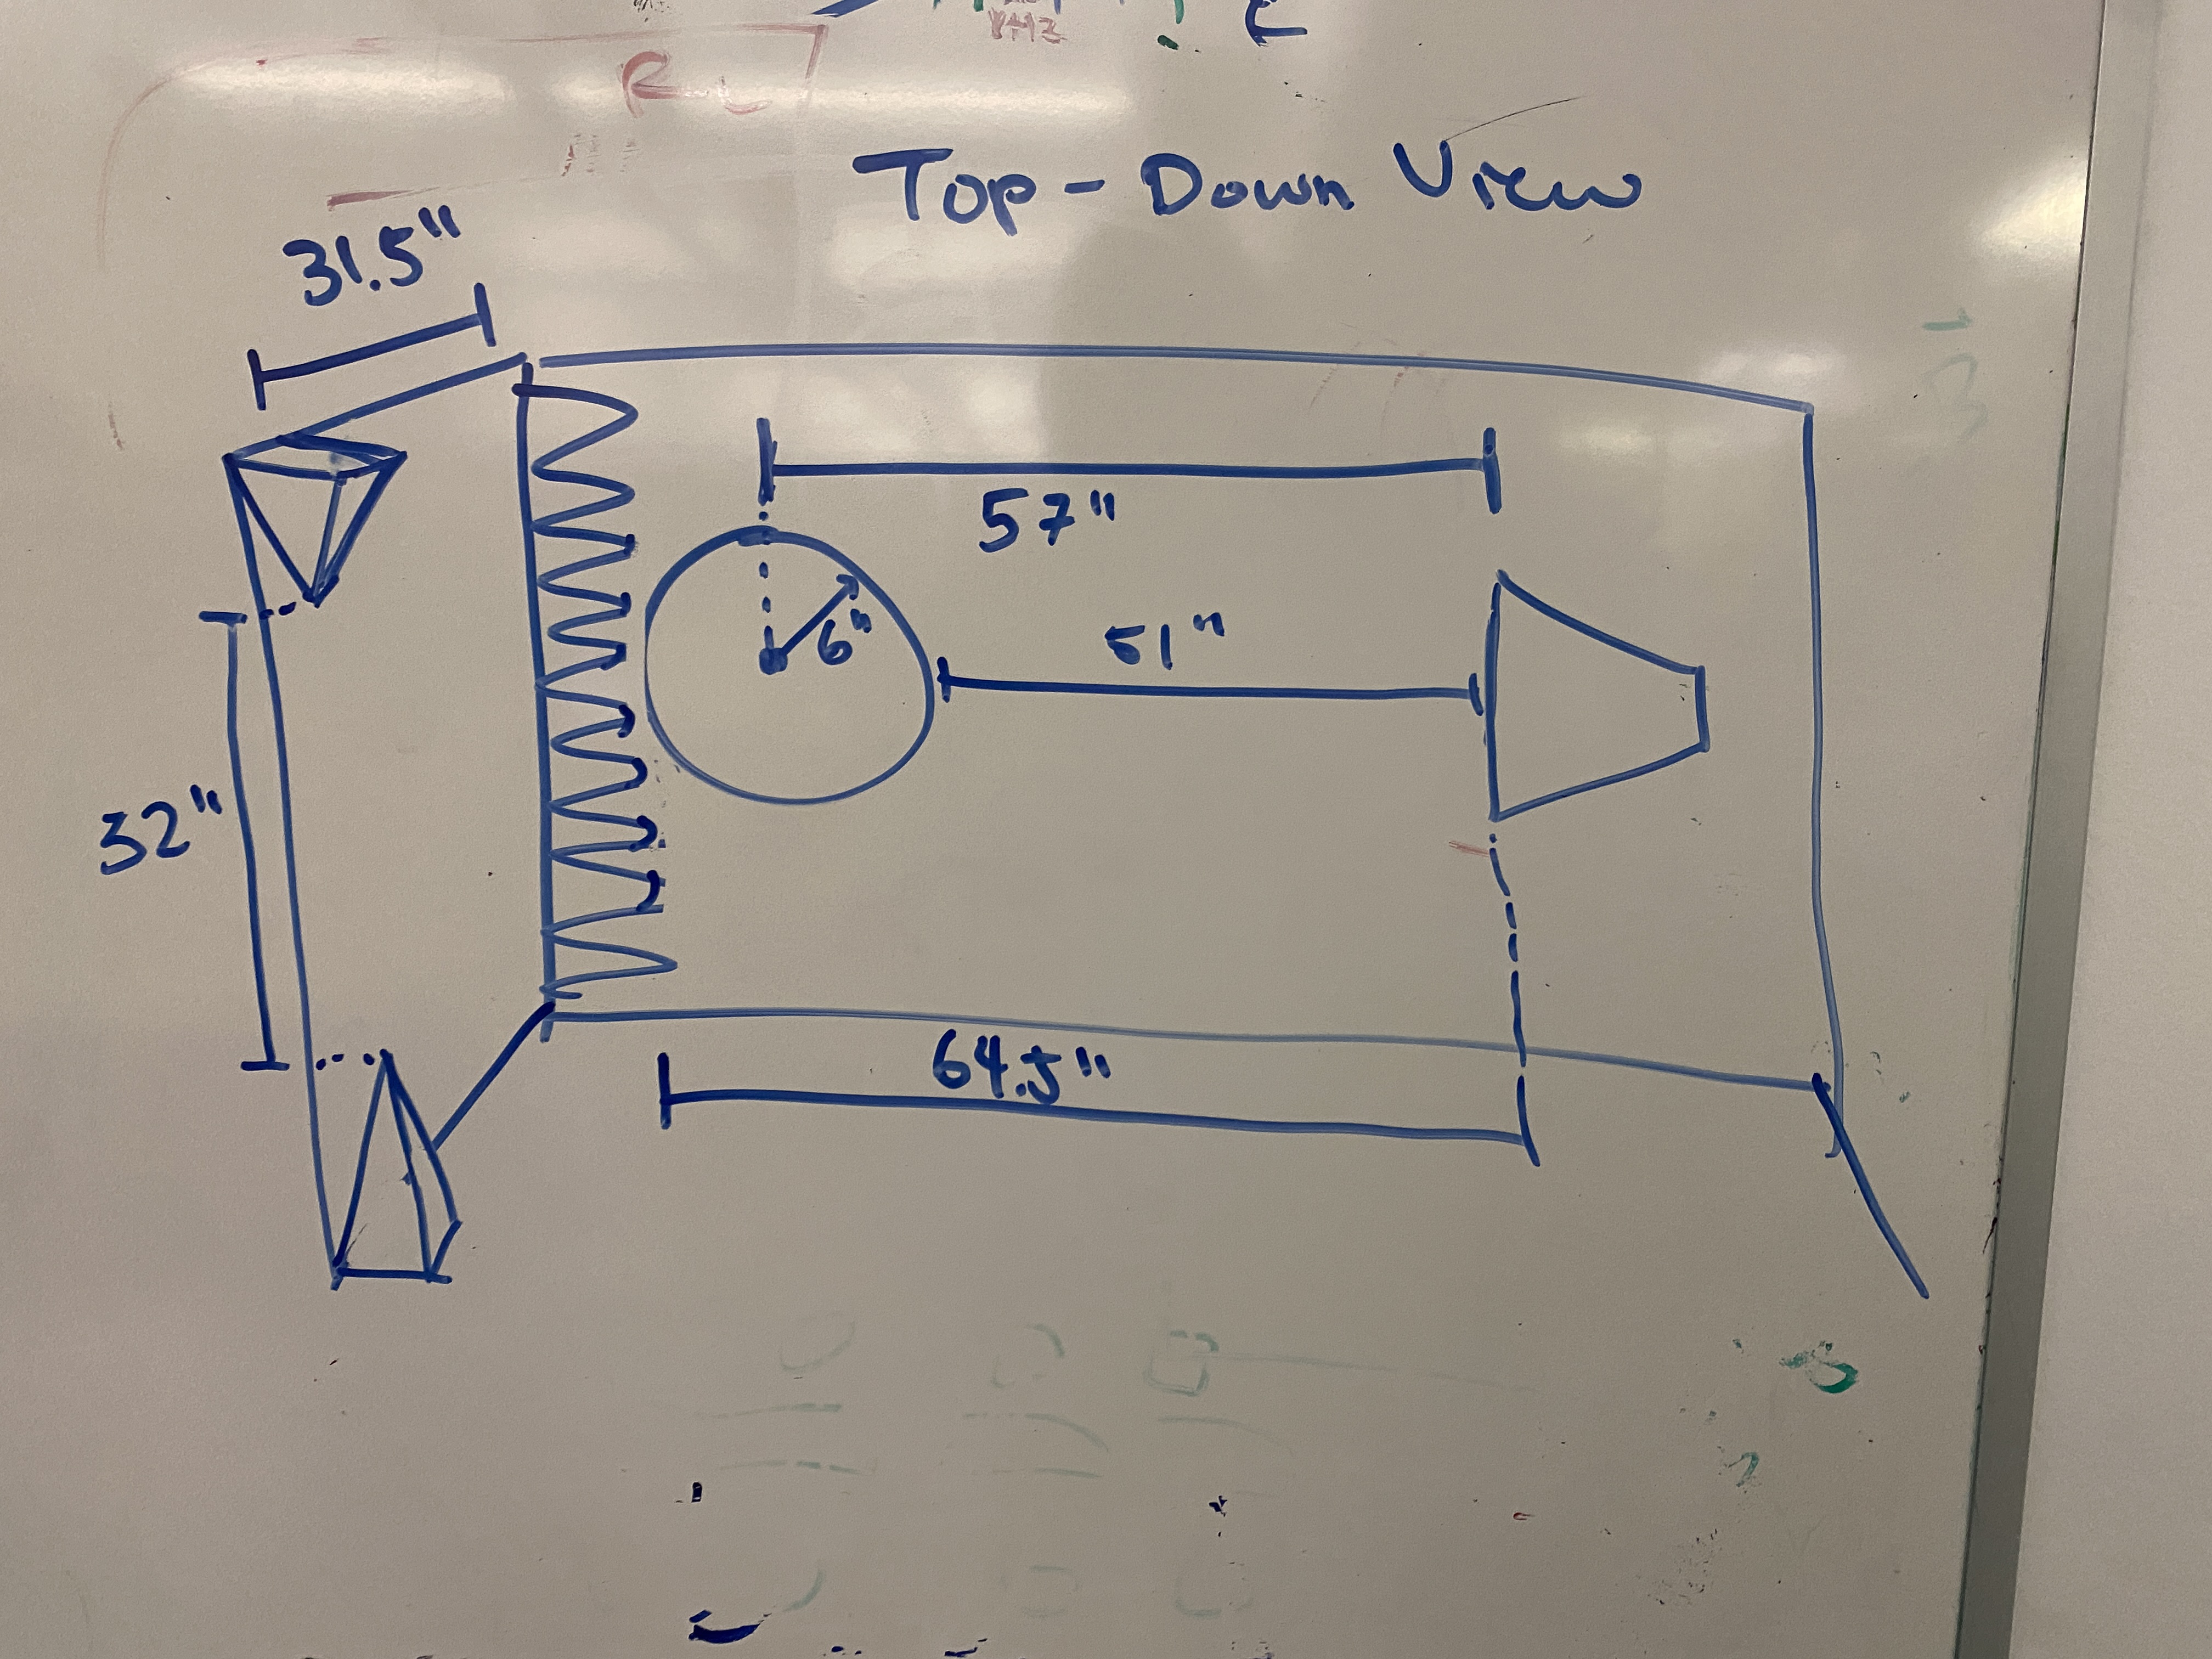 Top-Down View
31.5"
57"
6"
51"
32"
64.5"